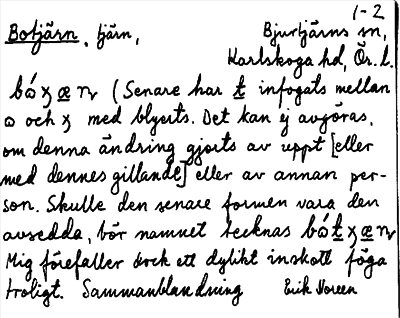 1-2
Botjärn, tjärn, Bjurtjärns sn,
Karlskoga hd, Ör. l.
(Senare har t infogats mellan
ɷ och ʒ med blyerts. Det kan ej avgöras,
om denna ändring gjorts av uppt [eller
med dennes gillande] eller av annan per-
son. Skulle den senare formen vara den
avsedda, bör namnet tecknas
Mig förefaller dock ett dylikt inskott föga
troligt. Sammanblandning Erik Noreen